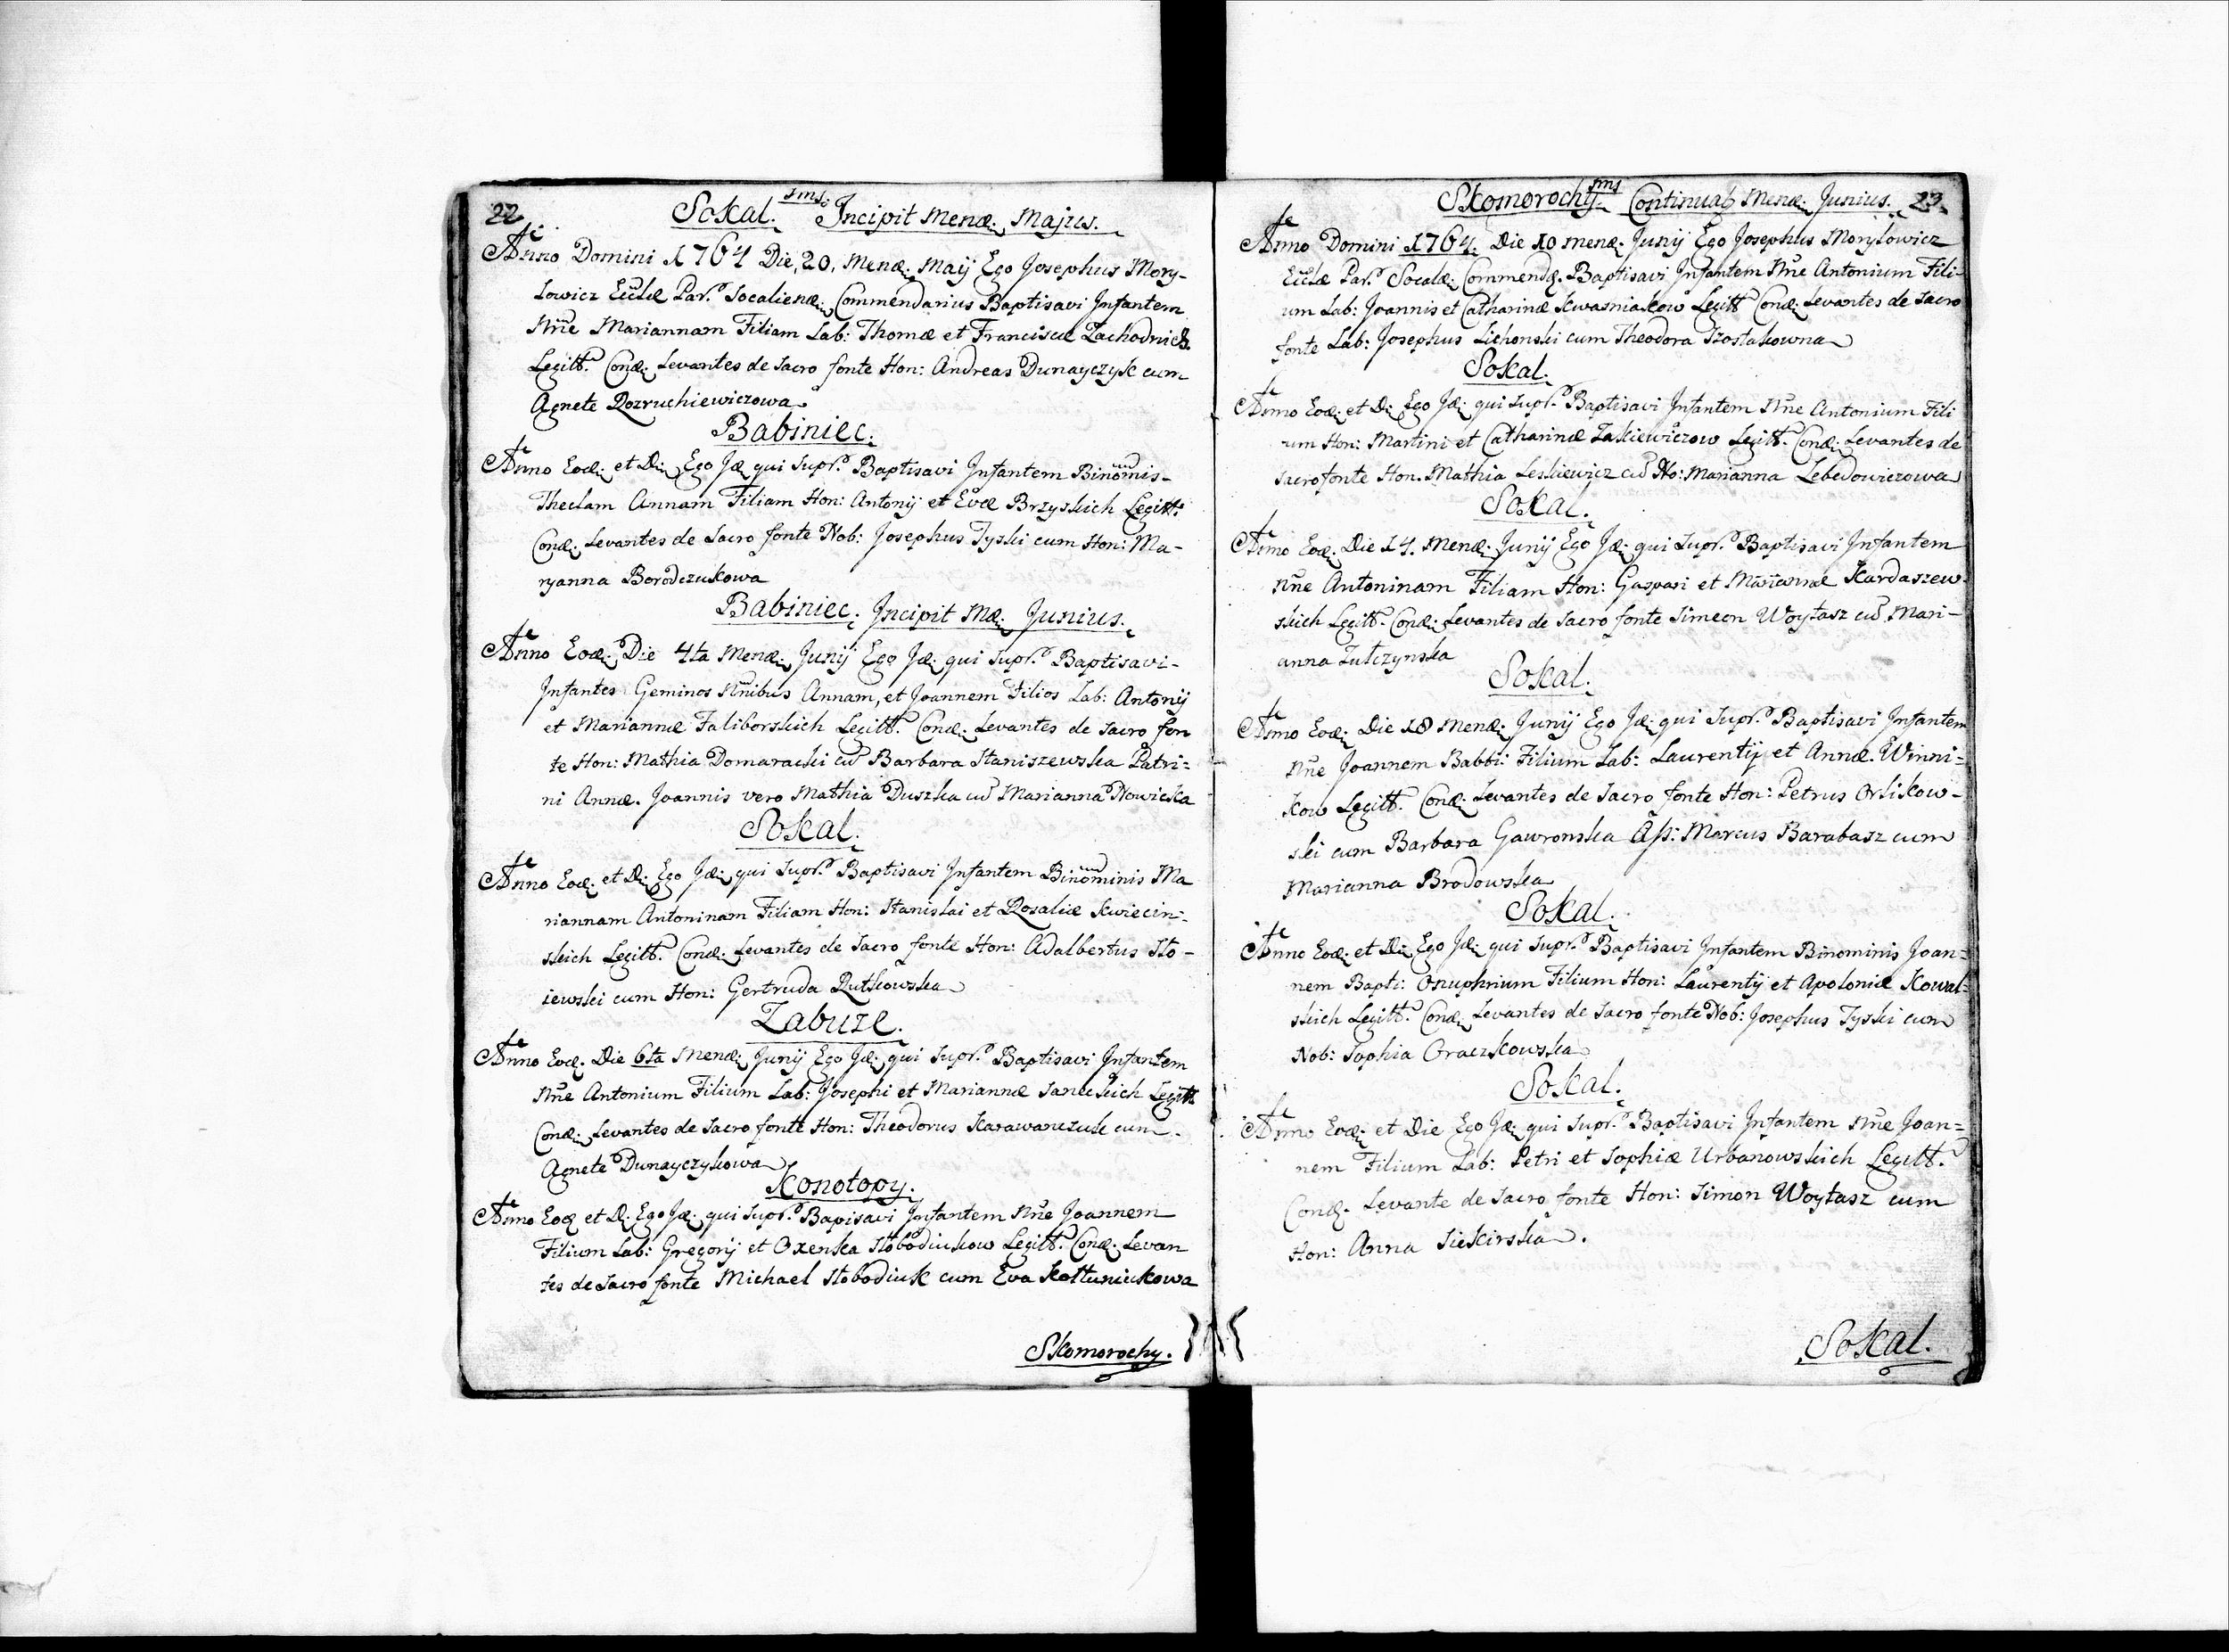 22 Sokal. Incipit Menæ. Majus.
Anno Domini 1764 Die, 20, Menæ. Maÿ Ego Josephus Mory-
lowicz Ecclæ Par. Socalienæ. Commendarius Baptisavi Infantem
Nne Mariannam Filiam Lab: Thomæ et Franciscæ Zachodnich
Legitt. Conæ. Levantes de Sacro fonte Hon: Andreas Dunayczyk cum
Agnete Rozruchiewiczowa
Babiniec.
Anno Eoæ. et Di. Ego Jæ. qui Supr. Baptisavi Infantem Binominis-
Theclam Annam Filiam Hon: Antonÿ et Evæ Brzyskich Legitt.
Conæ. Levantes de Sacro fonte Nob: Josephus Tyski cum Hon: Ma-
ryanna Borodczukowa
Babiniec. Incipit Mæ. Junius.
Anno Eoæ. Die 4ta Menæ. Junÿ Ego Jæ. qui Supr. Baptisavi-
Infantes Geminos Nnibus Annam, et Joannem Filios Lab: Antonÿ
et Mariannæ Faliborskich Legitt. Conæ. Levantes de Sacro fon
te Hon: Mathia Domaracki cu Barbara Staniszewska Patri=
ni Annæ. Joannis vero Mathia Duszka cu Marianna Nowicka
Sokal.
Anno Eoæ. et Di. Ego Jæ. qui Supr. Baptisavi Infantem Binominis Ma
riannam Antoninam Filiam Hon: Stanislai et Rosaliæ Kwiecin-
skich Legitt. Conæ. Levantes de Sacro fonte Hon: Adalbertus Sto-
iewski cum Hon: Gertruda Rutkowska
Zabuze.
Anno Eoæ. Die 6ta Menæ. Junÿ Ego Jæ. qui Supr. Baptisavi Infantem
Nne Antonium Filium Lab: Josephi et Mariannæ Saneckich Legitt
Conæ. Levantes de Sacro fonte Hon: Theodorus Karawanczuk cum
Agnete Dunayczykowa
Konotopy.
Anno Eoæ et D. Ego Jæ. qui Supr. Bapisavi Infantem Nne Joannem
Filium Lab: Gregorÿ et Oxenka Slobodiukow Legitt. Conæ. Levan
tes de Sacro fonte Michael Slobodiuk cum Eva Koltuniukowa
Skomorochy.
Skomorochy. Continuat Menæ. Junius. 23.
Anno Domini 1764. Die 10 Menæ. Junÿ Ego Josephus Morylowicz
Ecclæ Par. Socalæ. Commendæ. Baptisavi Infantem Nne Antonium Fili-
um Lab: Joannis et Catharinæ Kwasniakow Legitt Conæ. Levantes de Sacro
fonte Lab: Josephus Lichonski cum Theodora Szostakowna
Sokal.
Anno Eoæ. et Di. Ego Jæ. qui Supr. Baptisavi Infantem Nne Antonium Fili
um Hon: Martini et Catharinæ Zakiewiczow Legitt. Conæ. Levantes de
Sacro fonte Hon. Mathia Leskiewicz cu Ho: Marianna Lebedowiczowa
Sokal.
Anno Eoæ. Die 14. Menæ. Junÿ Ego Jæ. qui Supr. Baptisavi Infantem
Nne Antoninam Filiam Hon: Gaspari et Mariannæ Kardaszew
skich Legitt. Conæ. Levantes de Sacro fonte Simeon Woytasz cu Mari-
anna Zulczynska
Sokal.
Anno Eoæ. Die 18 Menæ. Junÿ Ego Jæ. qui Supr. Baptisavi Infantem
Nne Joannem Babbi: Filium Lab: Laurentÿ et Annæ. Winni=
kow Legitt. Conæ. Levantes de Sacro fonte Hon: Petrus Orlikow-
ski cum Barbara Gawronska Ass: Marcus Barabasz cum
Marianna Brodowska
Sokal.
Anno Eoæ. et Di. Ego Jæ. qui Supr. Baptisavi Infantem Binominis Joan=
nem Bapti: Onuphrium Filium Hon: Laurentÿ et Apoloniæ Kowal=
skich Legitt. Conæ. Levantes de Sacro fonte Nob: Josephus Tyski cum
Nob: Sophia Oraczkowska
Sokal.
Anno Eoæ. et Die Ego Jæ. qui Supr. Baptisavi Infantem Nne Joan=
nem Filium Lab: Petri et Sophiæ Urbanowskich Legitt.
Conæ. Levante de Sacro fonte Hon: Simon Woytasz cum
Hon: Anna Siekirska.
Sokal.